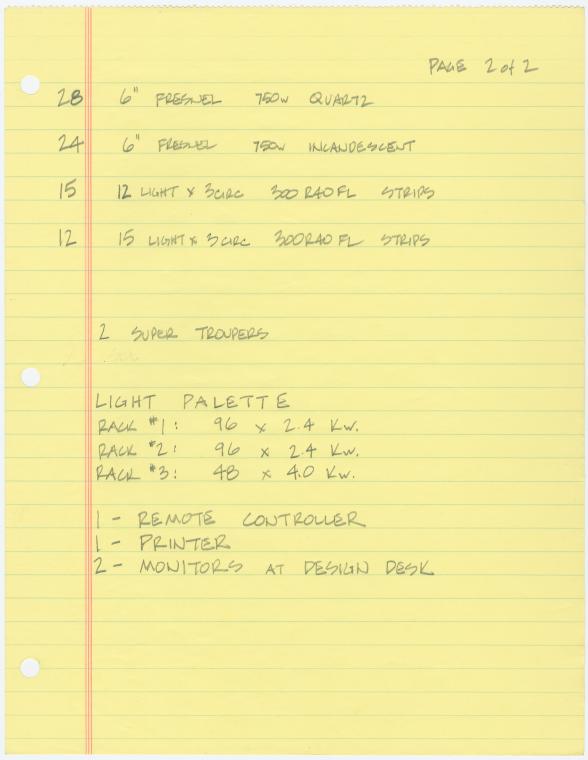 PAGE 2 of 2
28 6" FRESNEL 750W QUARTZ
24 6" FRESNEL 750W INCANDESCENT
15 12 LIGHT x 3 CIRC 300 R40 FL STRIPS
12 15 LIGHT x 3 CIRC 300 R40 FL STRIPS
2 SUPER TROUPERS
LIGHT PALETTE
RACK #1: 96 x 2.4 KW.
RACK #2: 96 x 2.4 KW.
RACK #3: 48 x 4.0 KW.
1 - REMOTE CONTROLLER
1 - PRINTER
2 - MONITORS AT DESIGN DESK